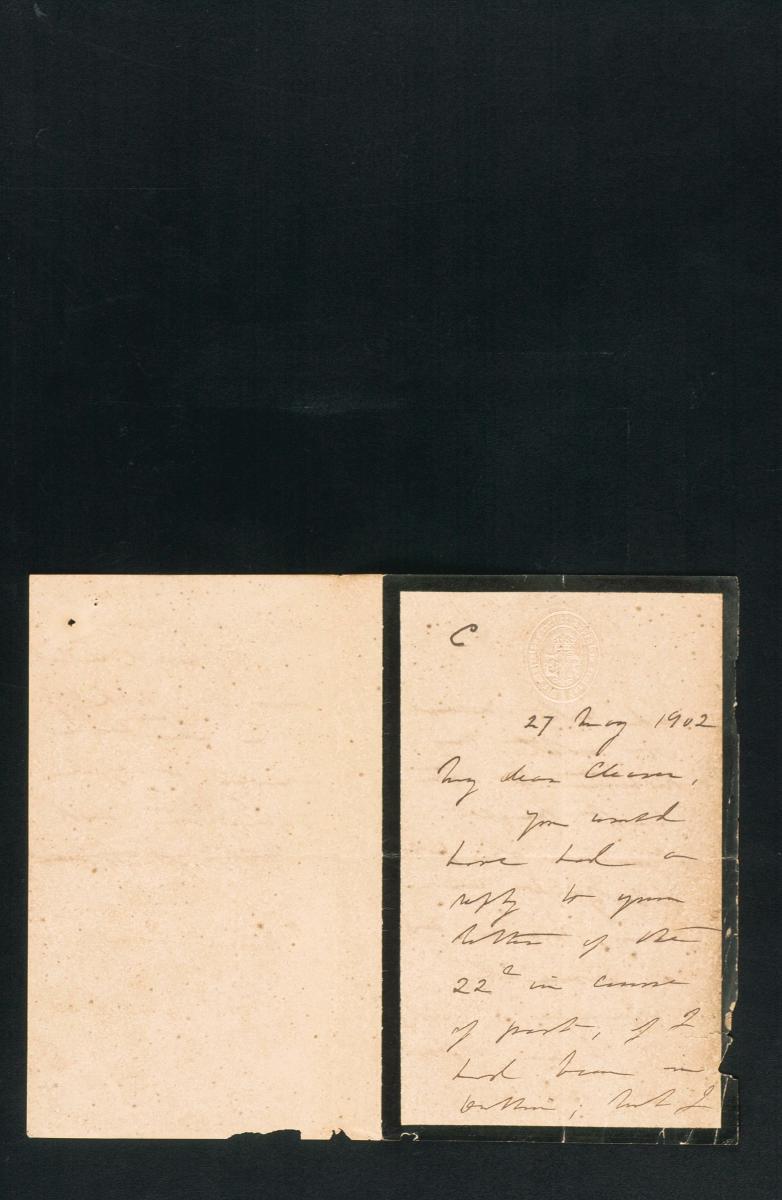 C
27 May 1902
My dear Cleaver,
You would
have had a
reply to your
letter of the
22d in course
of post, if I
had been in
but I